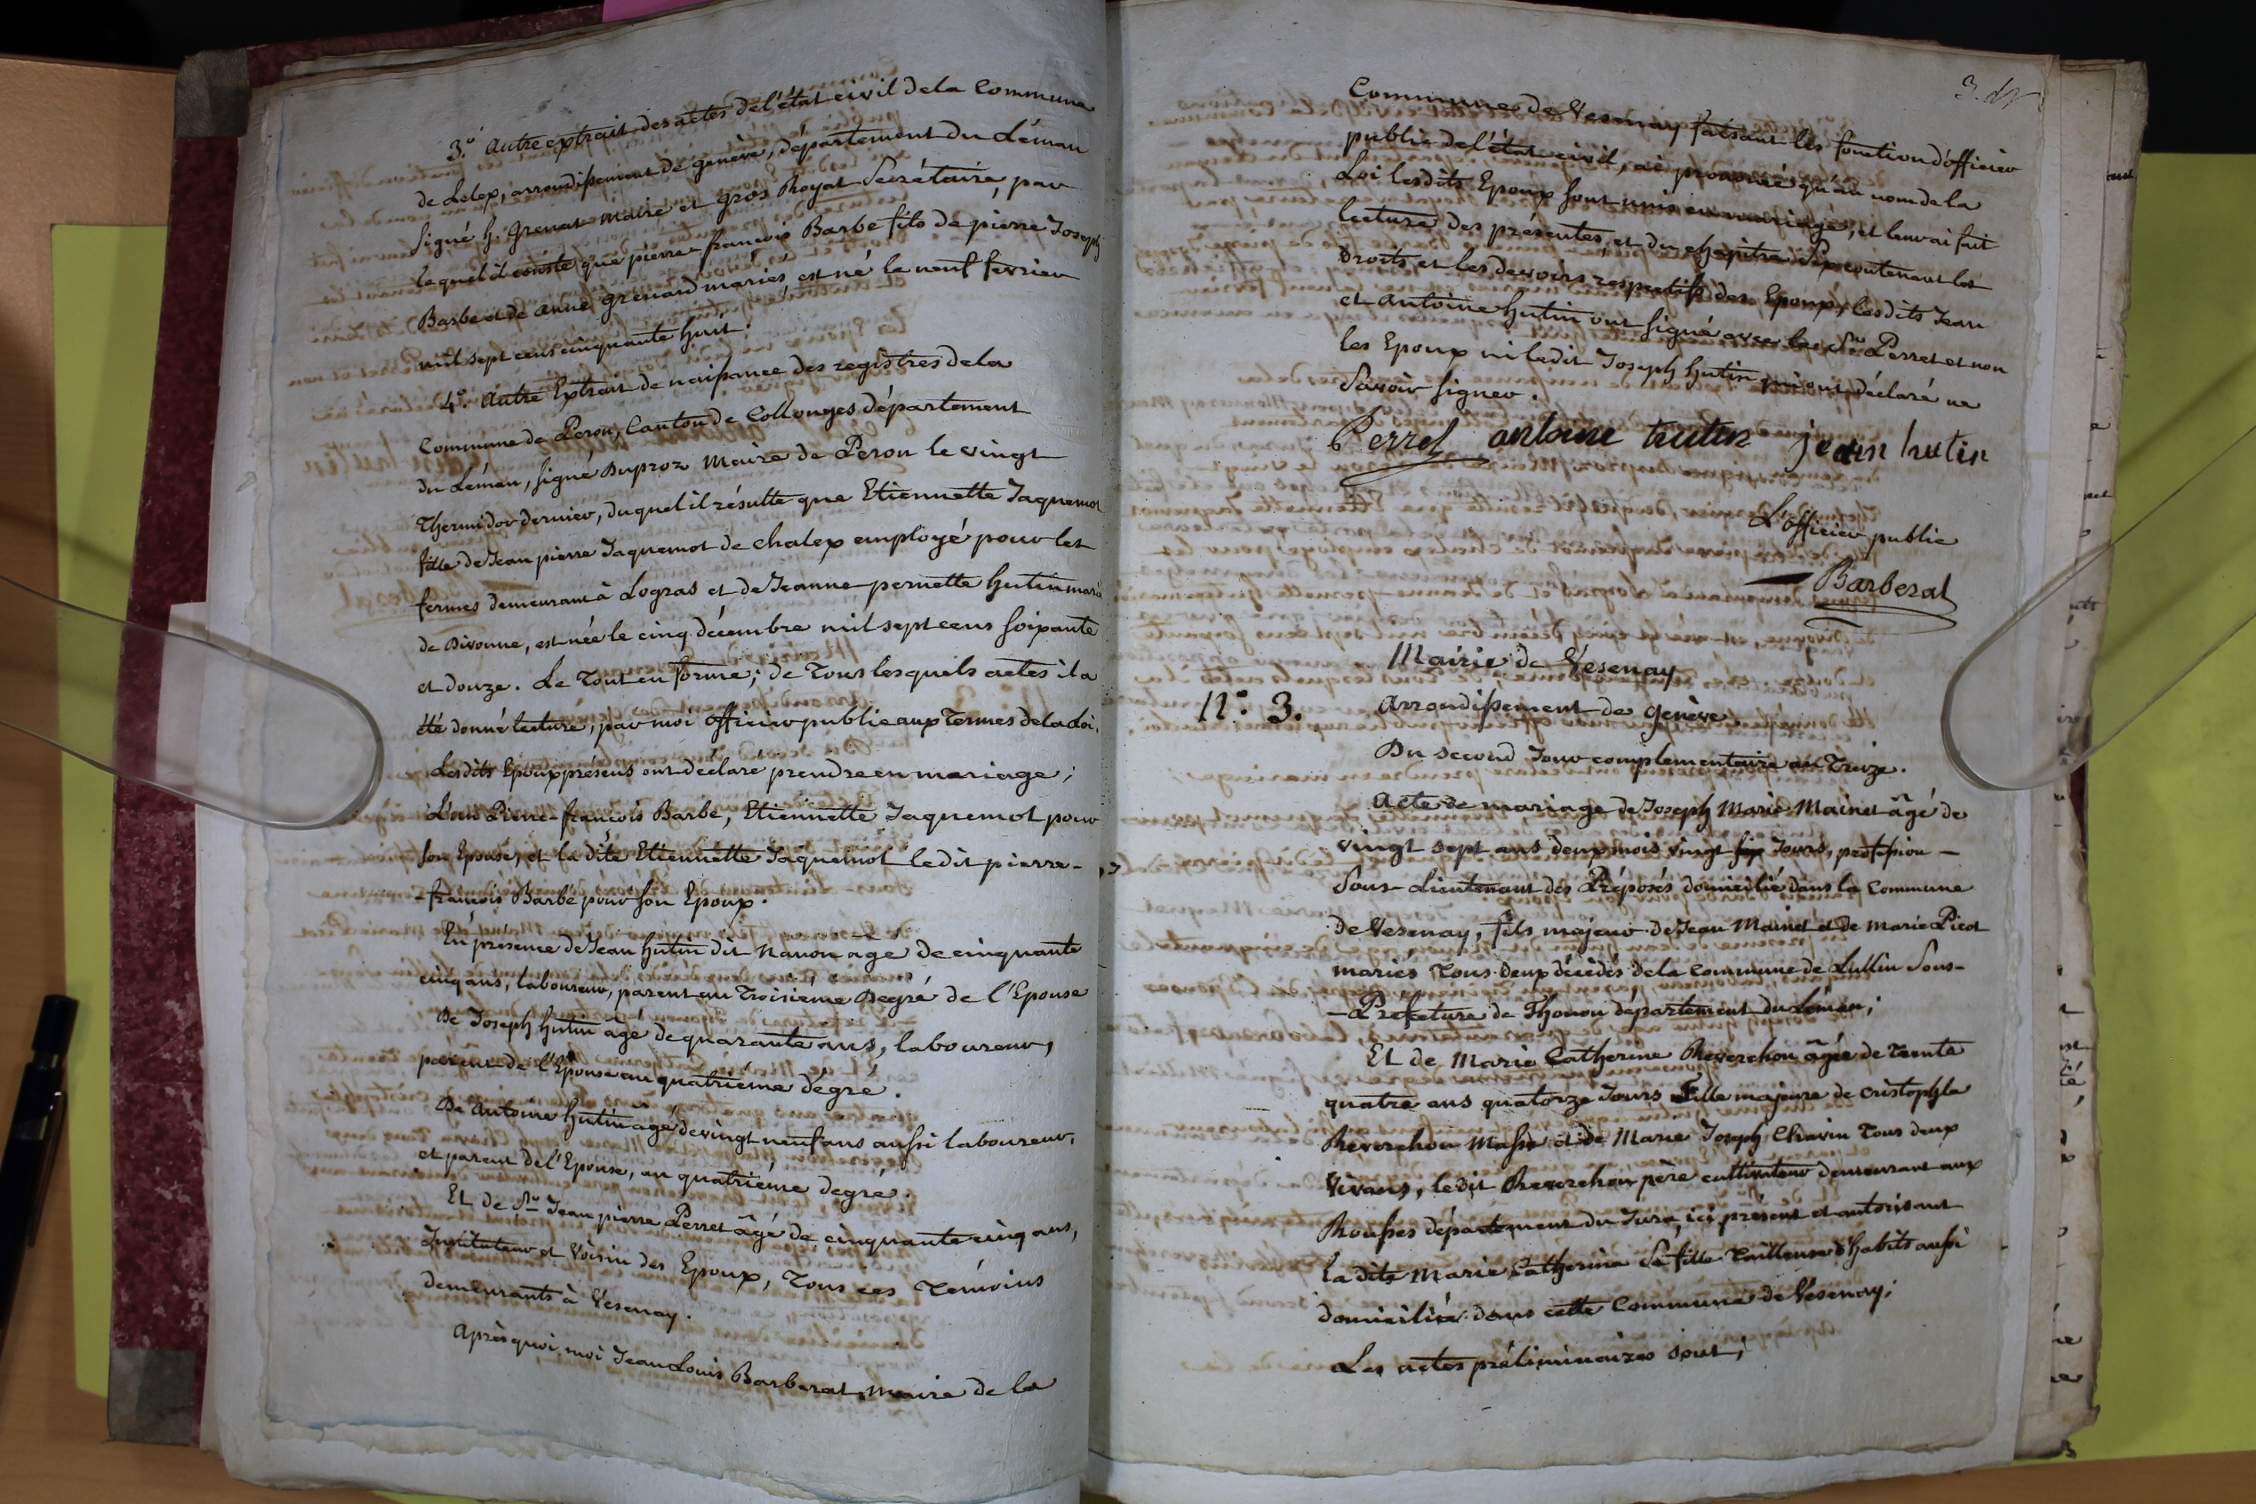 3.º Autre extrait des actes de l'état civil de la Commune
de Lelex, arrondissement de genève, département du Léman
Signé h. Grenat Maire et gros Royat Secrétaire, par
lequel il conste que pierre-françois Barbe fils de pierre Joseph
Barbe et de anne grenard mariés, est né le neuf fevrier
mil sept cens cinquante huit.
4.º Autre Extrait de naissance des registres de la
Commune de Peron, Canton de Collonges département
du Léman, signé Duproz Maire de Peron le vingt
Thermidor dernier, duquel il résulte que Etiennette Jaquemot
fille de Jean pierre Jaquemot de chalex employé pour les
fermes demeurant à Logras et de Jeanne-pernette hutin mariés
de Divonne, est née le cinq décembre mil sept cens soixante
et douze. Le Tout en forme; de Tous lesquels actes il a
été donné lecture, par moi officier public aux Termes de la Loi.
Lesdits Epoux présens ont déclaré prendre en mariage;
L'un Pierre-françois Barbé, Etiennette Jaquemot pour
son Epouse, et la dite Etiennette Jaquemot ledit pierre-
-françois Barbé pour son Epoux.
En présence de Jean hutin dit Nanon agé de cinquante
cinq ans, laboureur, parent au Troisième Degré de l'Epouse
De Joseph hutin âgé de quarante ans, laboureur,
parent de l'Epouse au quatrième dégré.
De Antoine hutin agé de vingt neuf ans aussi laboureur,
et parent de l'Epouse, au quatriéme degré.
Et de Sr. Jean pierre Perret âgé de cinquante cinq ans,
Instituteur et Voisin des Epoux, Tous ces Témoins
demeurants à Vesenay.
Après quoi moi Jean Louis Barberat Maire de la
3.
Commune de Vesenay faisant les fonction d'officier
public de l'état civil, ai prononcé qu'au nom de la
Loi lesdits Epoux sont unis en mariage, et leur ai fait
lecture des présentes, et du chapitre Six contenant les
droits et les devoirs respectifs des Epoux, lesdits Jean
et Antoine hutin ont signé avec le Sr. Perret et non
les Epoux ni ledit Joseph hutin qui ont déclaré ne
Savoir signer.
Perret antoine hutin jean hutin
L'officier public
Barberat
Mairie de Vesenay
N.º 3. Arrondissement de genève
Du second Jour complementaire an Treize.
Acte de mariage de Joseph Marie Mainet âgé de
vingt sept ans deux mois vingt six Jours, profession -
Sous-Lieutenant des Préposés domicilié dans la Commune
de Vesenay, fils majeur de Jean Mainet et de Marie Picot
mariés Tous deux décédés de la Commune de Lullin Sous-
-Préfecture de Thonon département du Léman;
Et de Marie Catherine Reverchon âgée de Trente
quatre ans quatorze Jours fille majeure de Cristophle
Reverchon et de Marie Joseph Chavin Tous deux
Vivans, ledit Reverchon père cultivateur demeurant aux
Rousses département du Jura, ici présent et autorisant
la dite Marie Catherine Sa fille Tailleuse d'habits aussi
domiciliée dans cette Commune de Vesenay;
Les actes préliminaires sont;